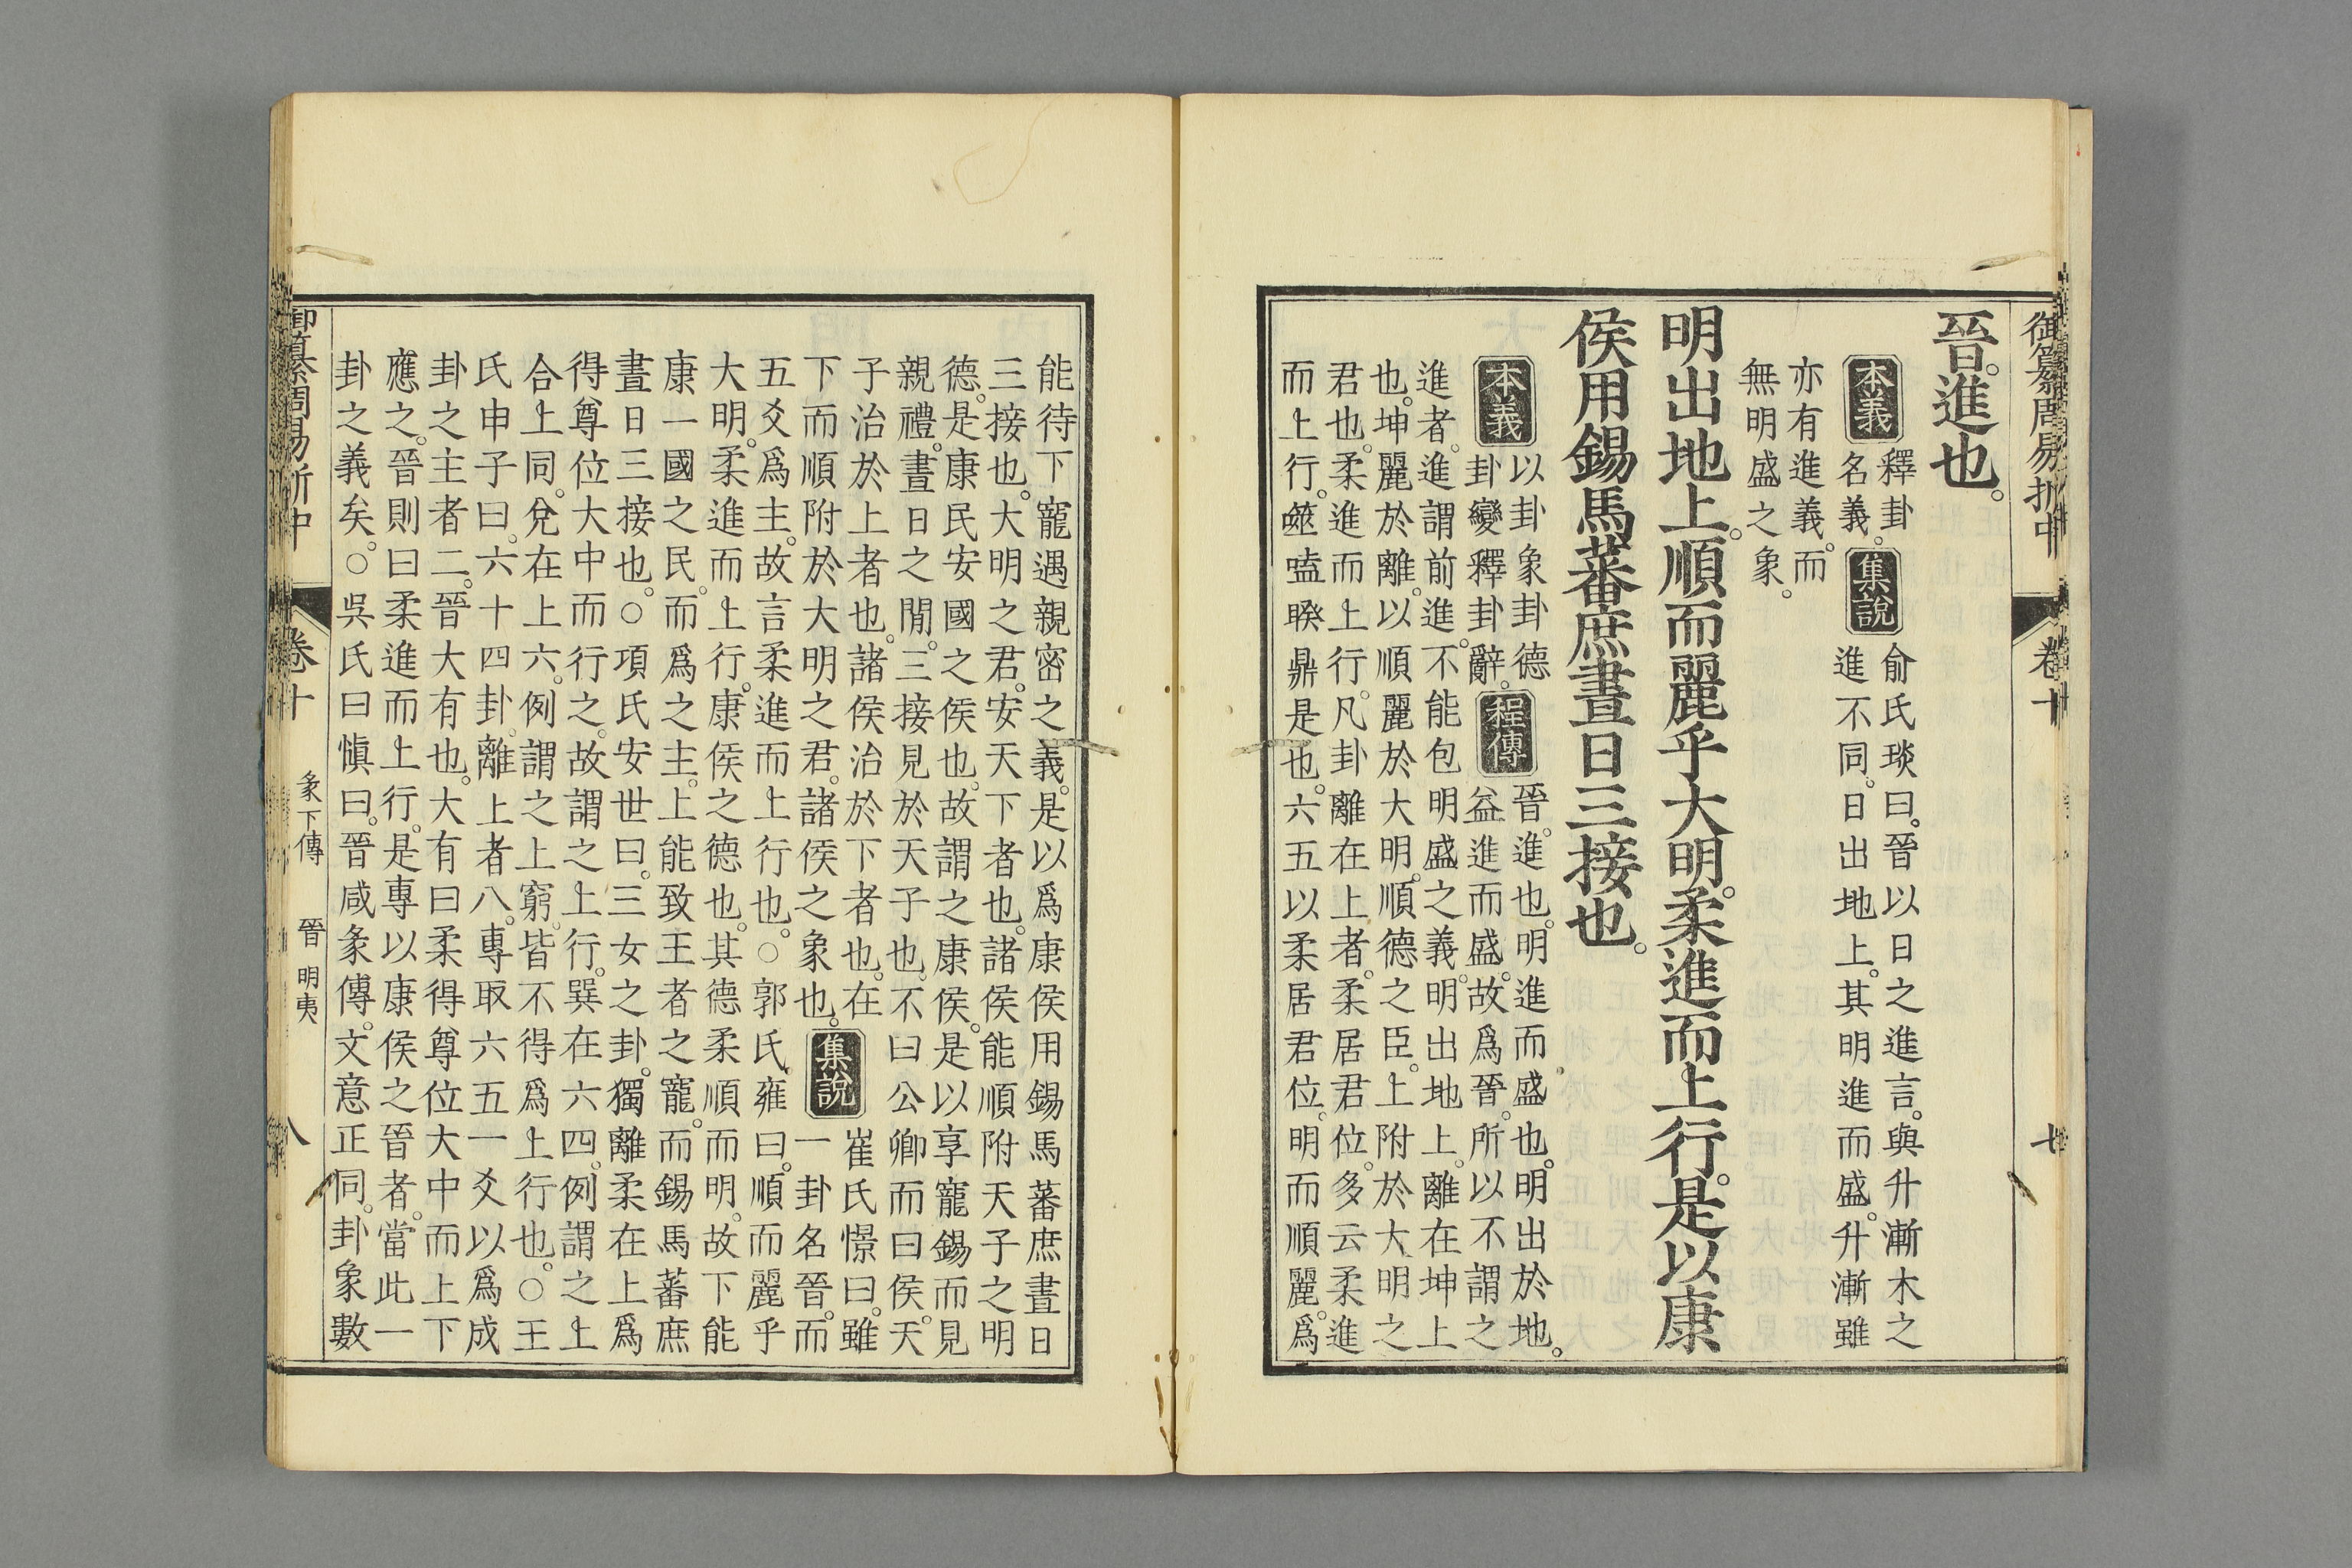 御纂周易折中 卷十 七
晉。進也。
本義 釋卦
名義。
集說 俞氏琰曰。晉以日之進言。與升漸木之
進不同。日出地上。其明進而盛。升漸雖
亦有進義。而
無明盛之象。
明出地上。順而麗乎大明。柔進而上行。是以康
侯用錫馬蕃庶晝日三接也。
本義 以卦象卦德
卦變釋卦辭。
程傳 晉。進也。明進而盛也。明出於地。
益進而盛。故爲晉。所以不謂之
進者。進謂前進。不能包明盛之義。明出地上。離在坤上
也。坤麗於離。以順麗於大明。順德之臣。上附於大明之
君也。柔進而上行。凡卦離在上者。柔居君位。多云柔進
而上行。噬嗑睽鼎是也。六五以柔居君位。明而順麗。爲
能待下寵遇親密之義。是以爲康侯用錫馬蕃庶晝日
三接也。大明之君。安天下者也。諸侯能順附天子之明
德。是康民安國之侯也。故謂之康侯。是以享寵錫而見
親禮。晝日之閒。三接見於天子也。不曰公卿而曰侯。天
子治於上者也。諸侯治於下者也。在
下而順附於大明之君。諸侯之象也。
集說 崔氏憬曰。雖
一卦名晉。而
五爻爲主。故言柔進而上行也。○郭氏雍曰。順而麗乎
大明。柔進而上行。康侯之德也。其德柔順而明。故下能
康一國之民。而爲之主。上能致王者之寵。而錫馬蕃庶
晝日三接也。○項氏安世曰。三女之卦。獨離柔在上爲
得尊位大中而行之。故謂之上行。巽在六四。例謂之上
合上同。兌在上六。例謂之上窮。皆不得爲上行也。○王
氏申子曰。六十四卦。離上者八。專取六五一爻以爲成
卦之主者二。晉大有也。大有曰柔得尊位大中而上下
應之。晉則曰柔進而上行。是專以康侯之晉者。當此一
卦之義矣。○吳氏曰愼曰。晉咸彖傳。文意正同。卦象數
御纂周易折中 卷十 彖下傳 晉 明夷 八